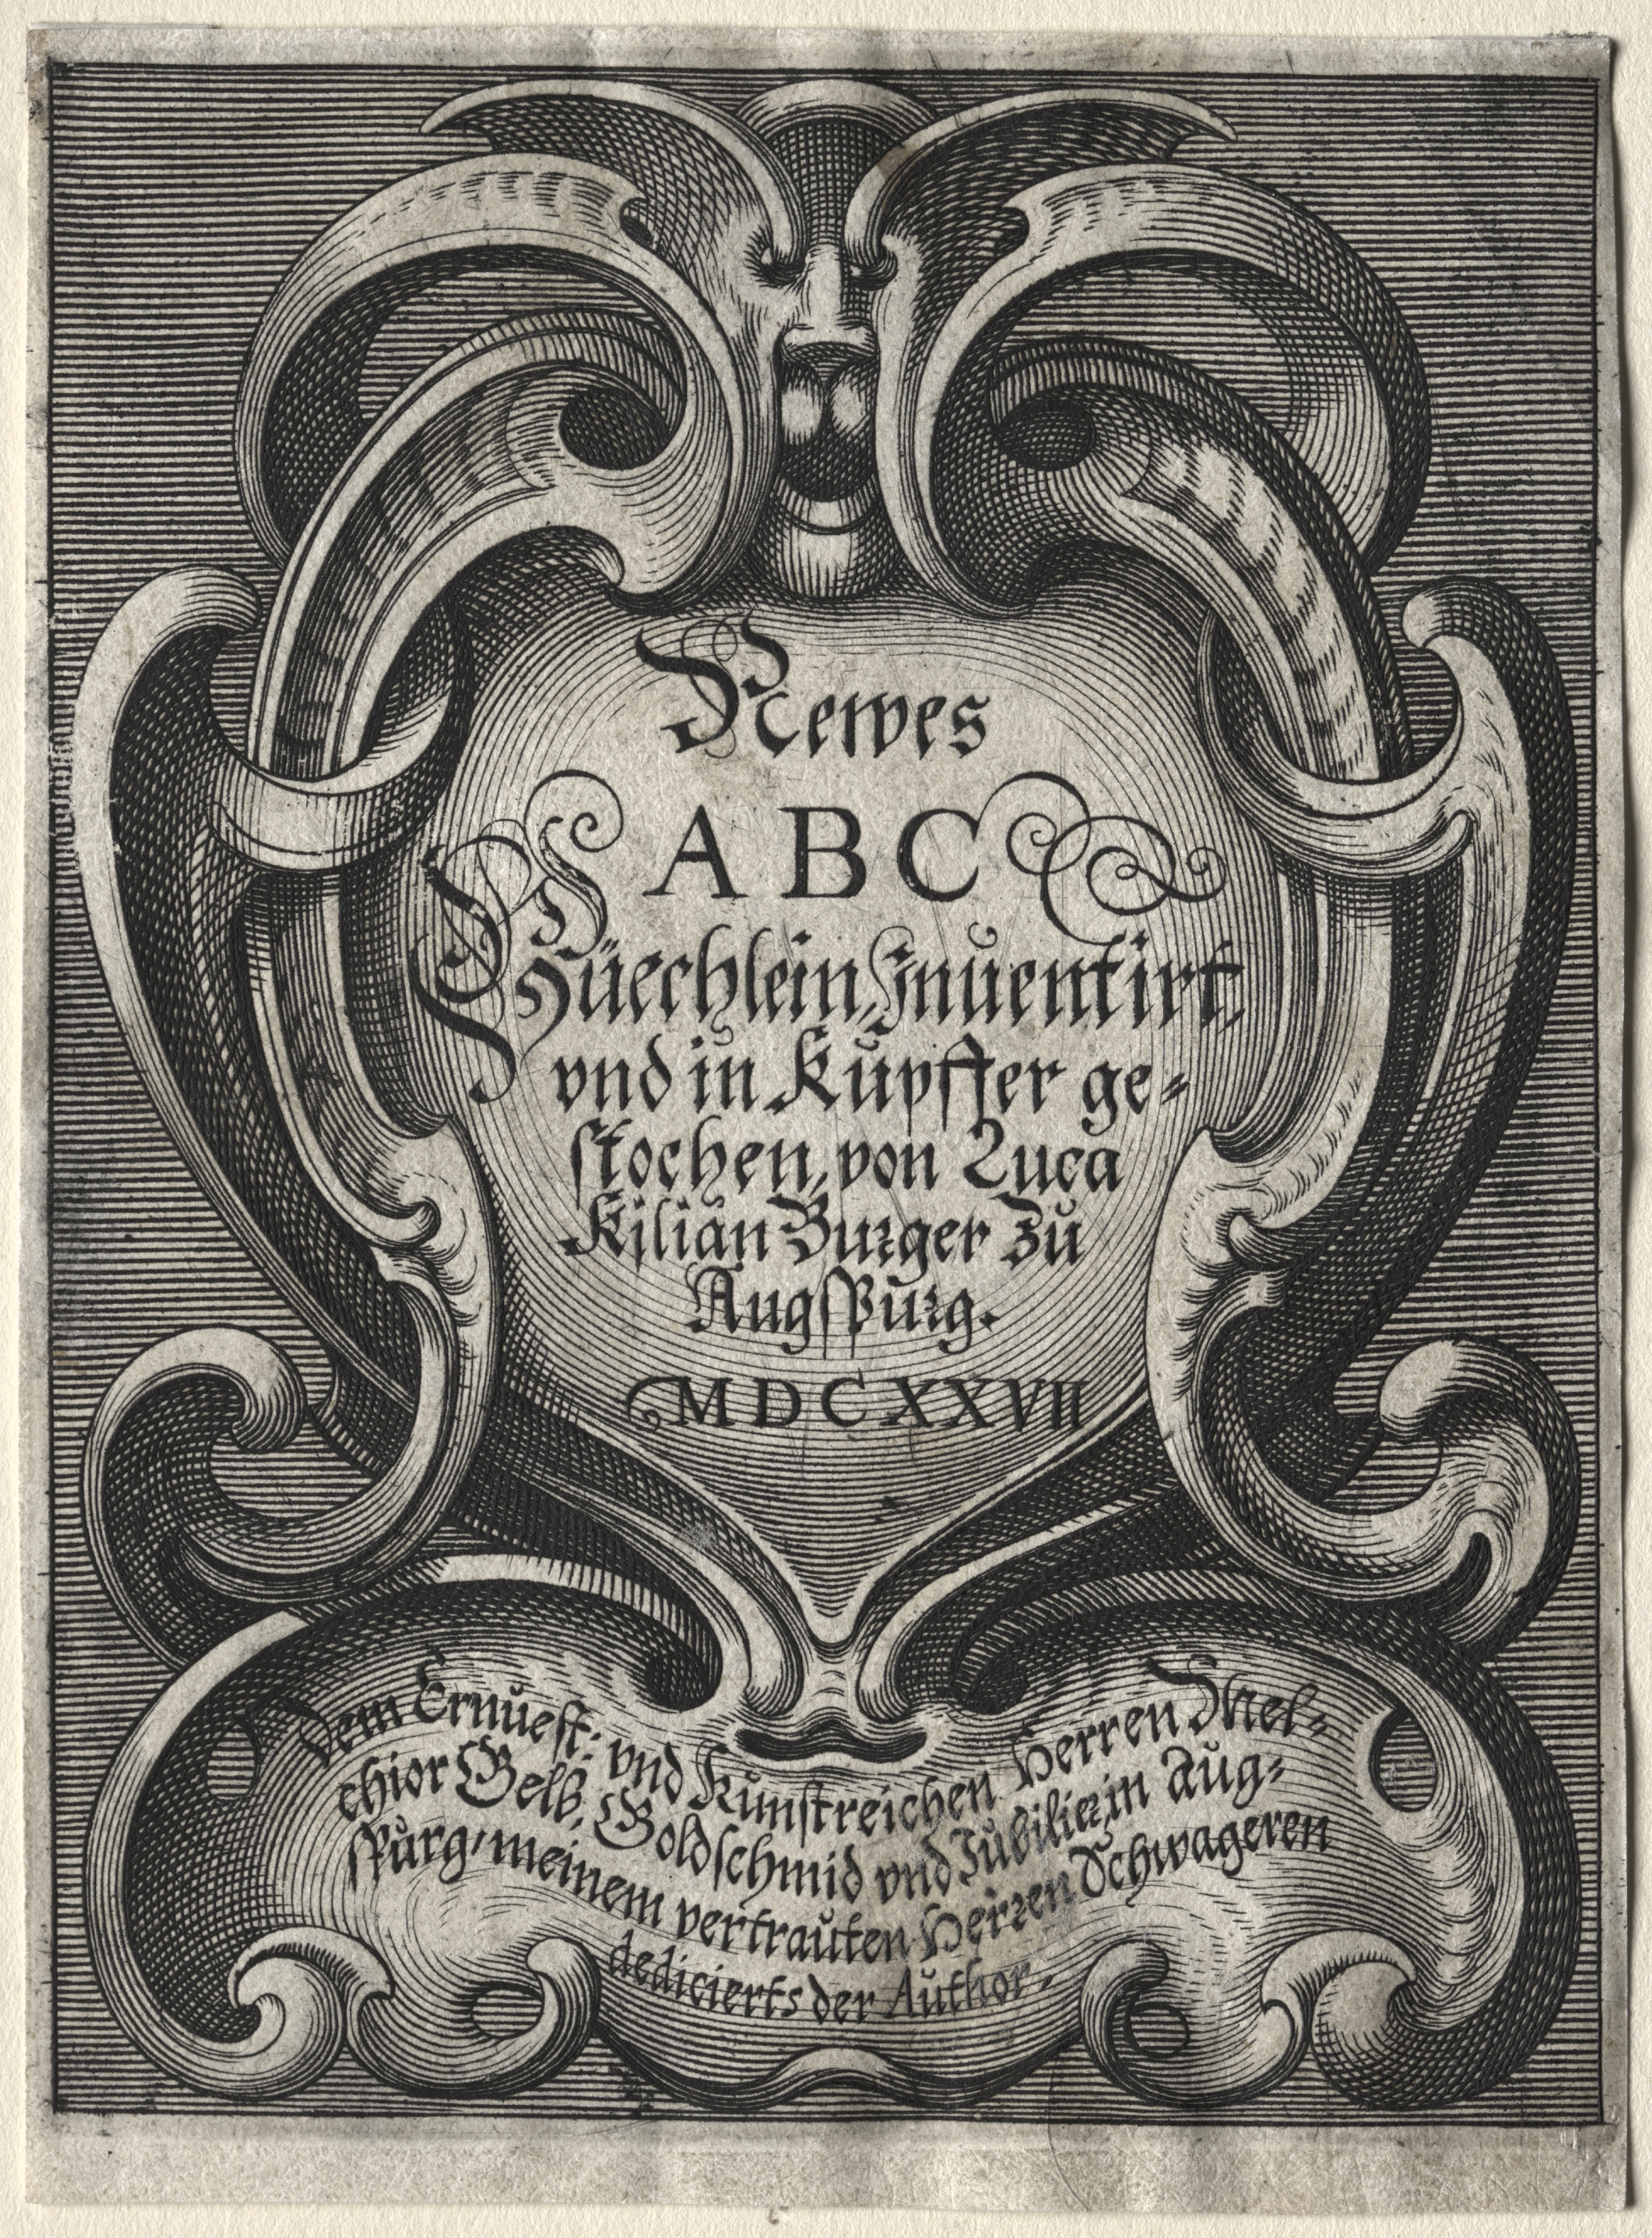 Newes
ABC
Büechlein, Inuentirt,
vnd in Kupffer ge-
stochen, von Luca
Kilian Burger zu
Augspurg.
MDCXXVII
Dem Ernuest: vnd Kunstreichen Herren Mel-
chior Gelb, Goldschmid vnd Jubilier, in Aug-
spurg, meinem vertrauten Herren Schwageren
dedicierts der Author.